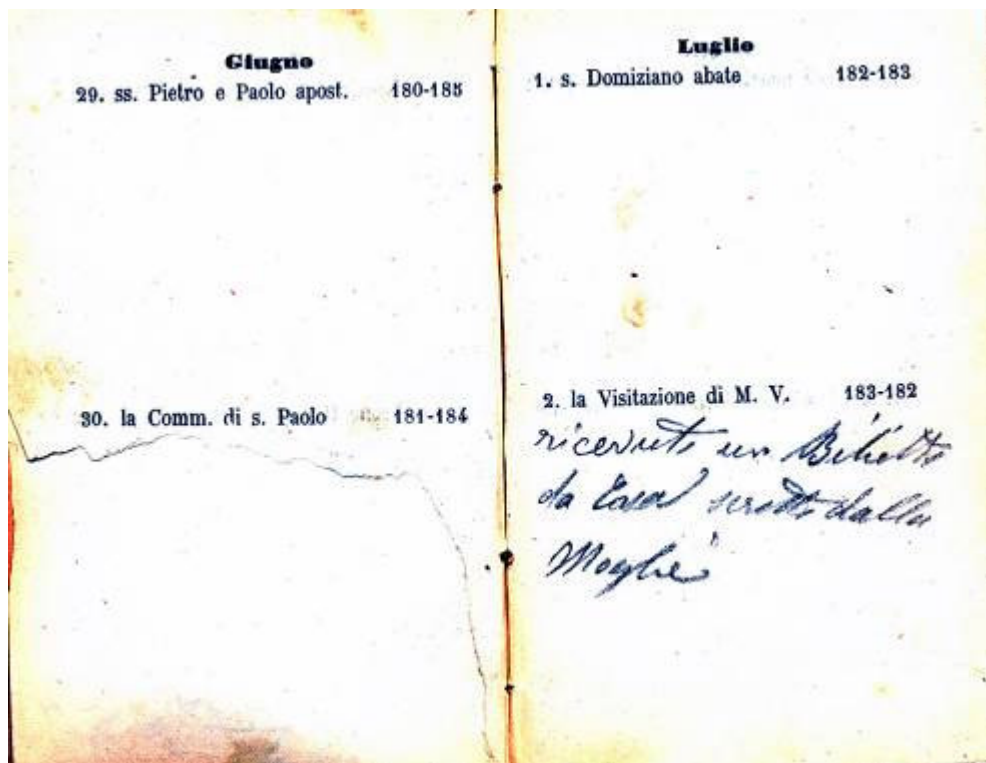 Giugno
29. ss. Pietro e Paolo apost. 180-185
30. la Comm. di s. Paolo 181-184
Luglio
1. s. Domiziano abate 182-183
2. la Visitazione di M. V. 183-182
ricevuto un Biglietto
da Casa scritto dalla
Moglie